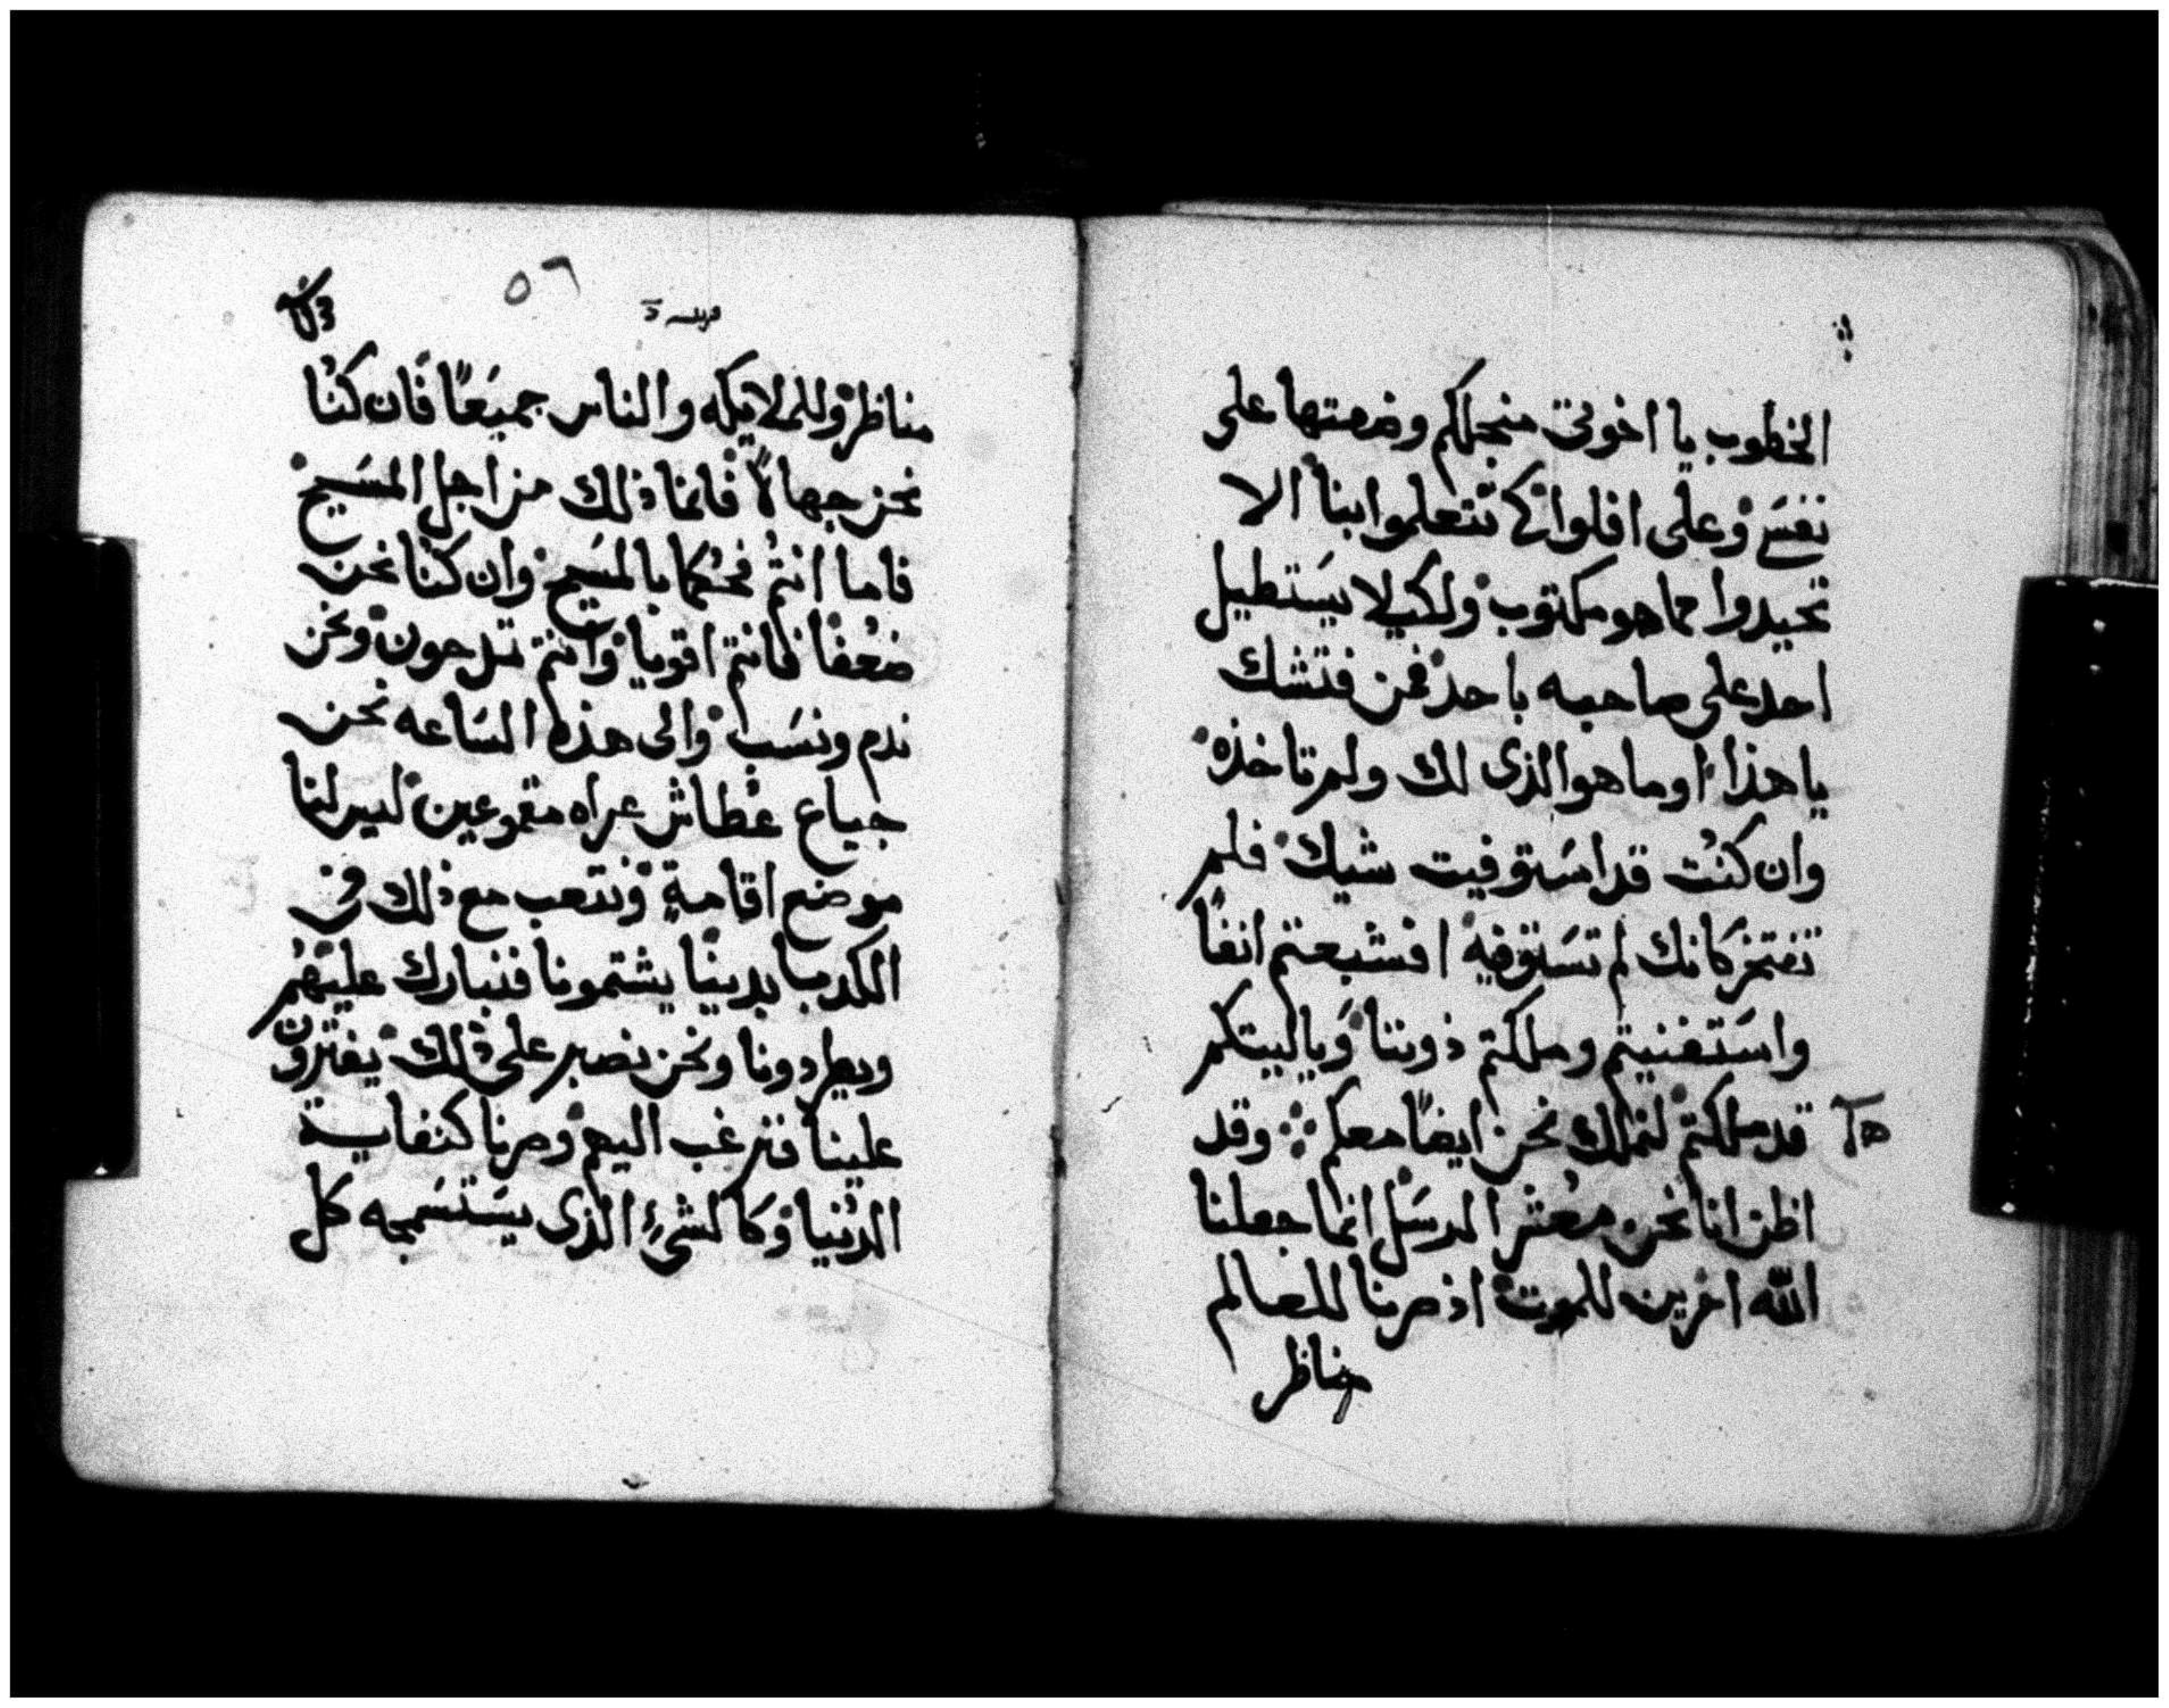 الخطوب يا اخوتى منجلكم وضمتها على
نفسى وعلى افلوا كى تتعلموا بنا الا
تحيدوا عما هو مكتوب ولكيلا يستطيل
احد على صاحبه باحد فمن فتشك
يا هذا اوما هو الذى لك ولم تاخذه
وان كنت قد استوفيت شيك فلم
تفتخر كانك لم تستوفيه افشبعتم انفا
واستغنيتم وملكتم دوننا وياليتكم
قد ملكتم لنملك نحن ايضًا معكم وقد
اظن انا نحن معشر الرسل انما جعلنا
الله اخرين للموت اذ صرنا للعالم
مناظر
٥٦
مناظر وللملايكه والناس جميعًا فان كنا
نحن جهالاً فانما ذلك من اجل المسيح
فاما انتم فحكما بالمسيح وان كنا نحن
ضعفا فانتم اقويا وانتم تمدحون ونحن
ندم ونسب والى هذه الساعه نحن
جياع عطاش عراه مقموعين ليس لنا
موضع اقامة ونتعب مع ذلك فى
الكد بايدينا يشتمونا فنبارك عليهم
ويطردونا ونحن نصبر على ذلك يفترون
علينا فنرغب اليهم وصرنا كنفاية
الدنيا وكالشئ الذى يستسمجه كل